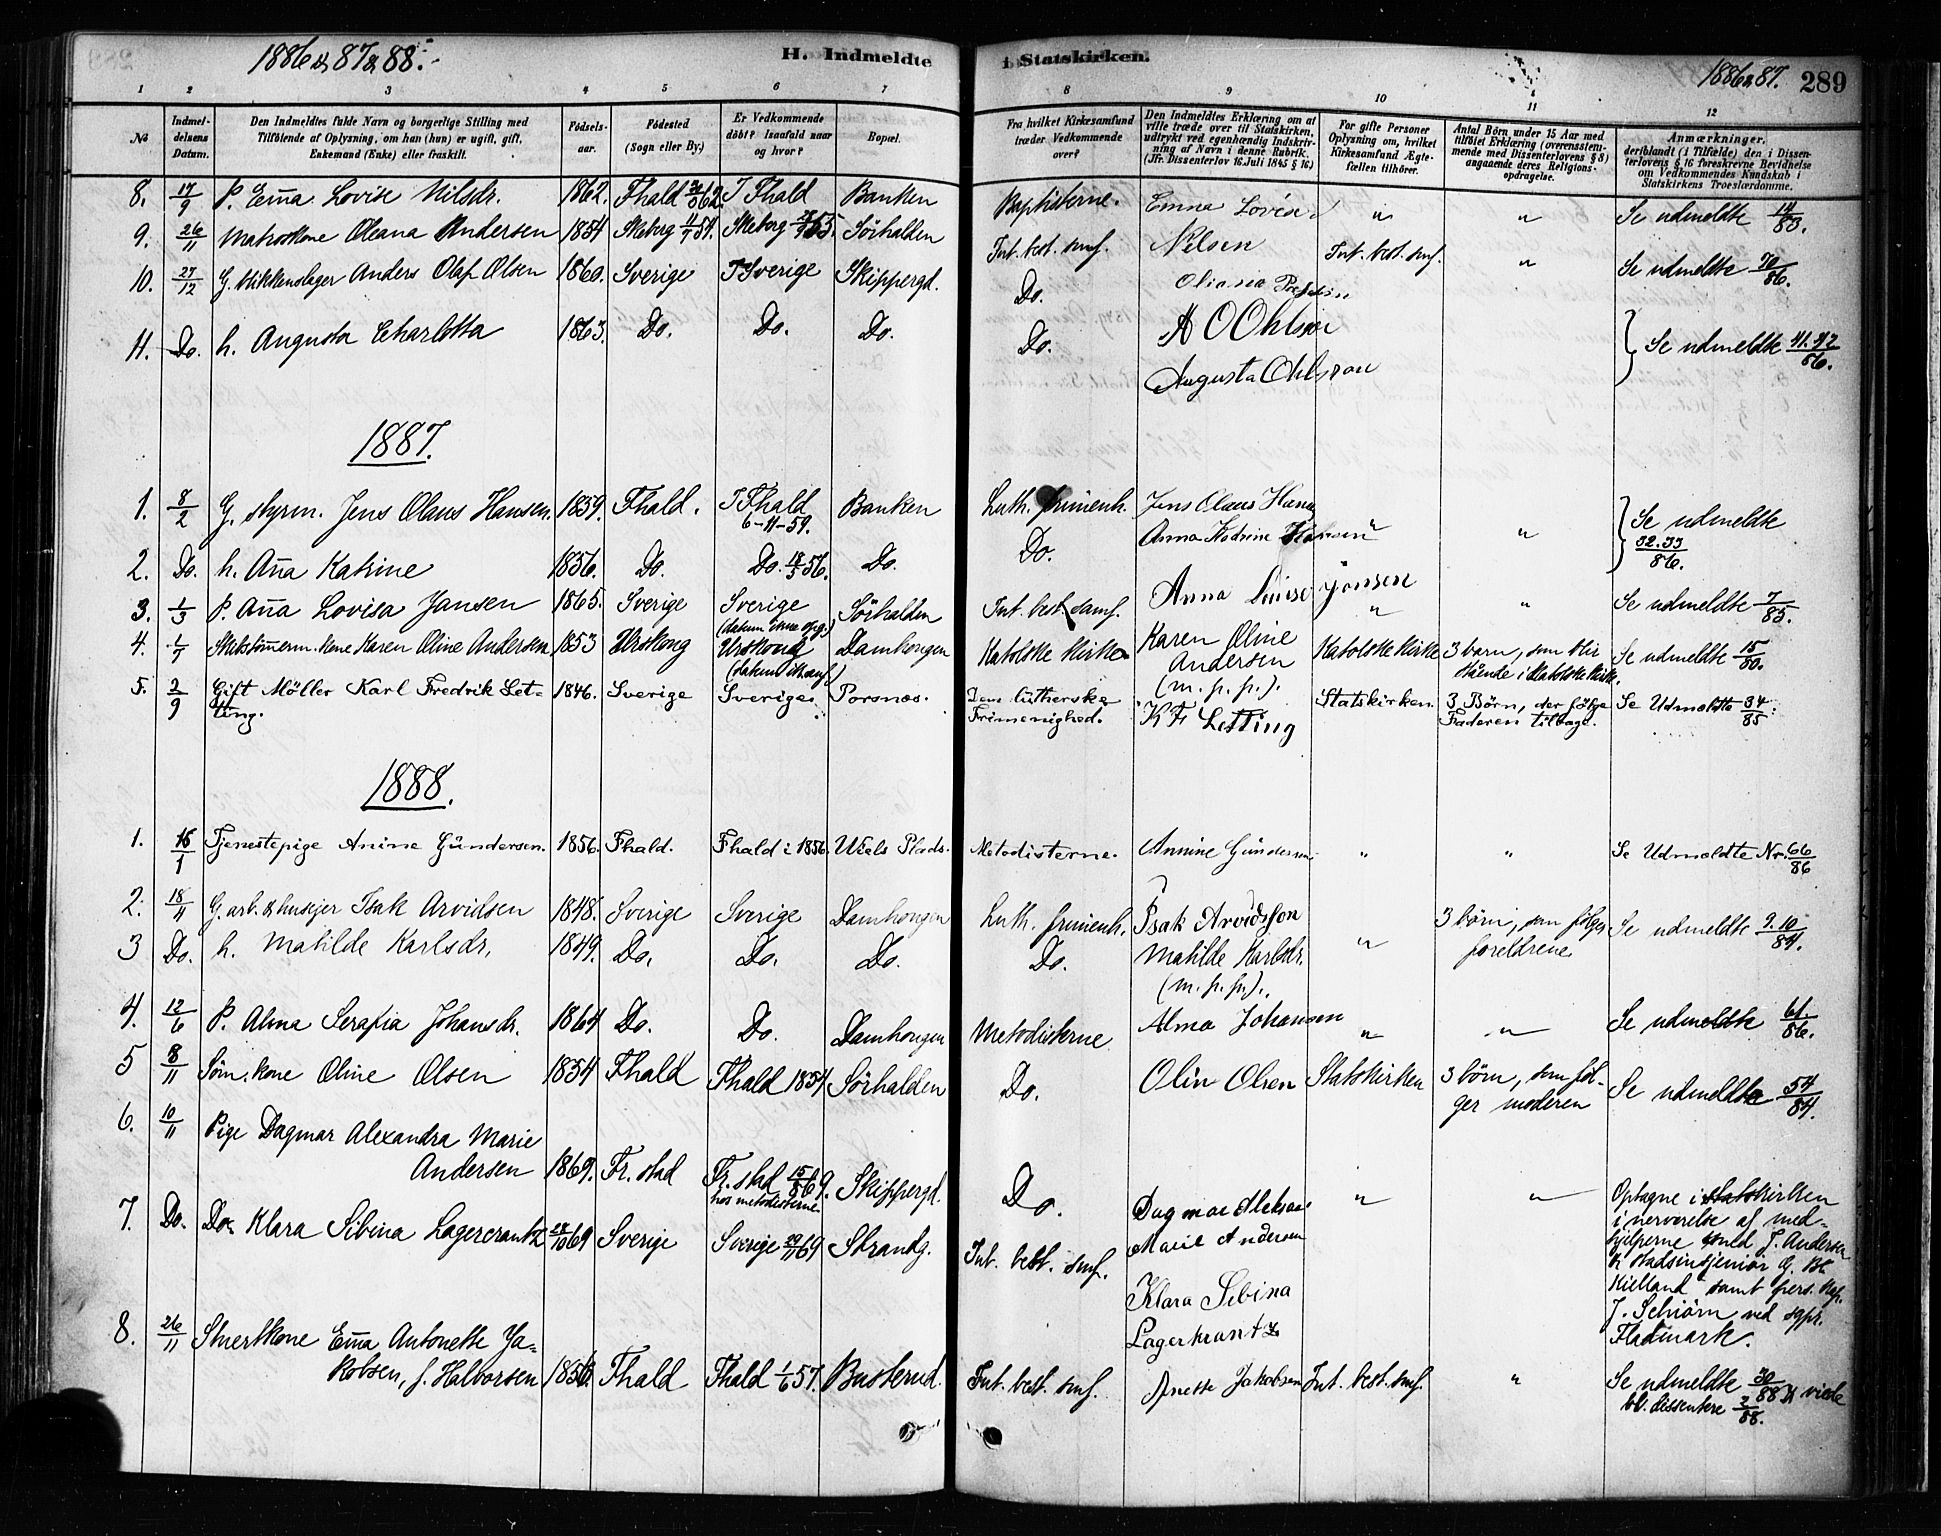 1886 & 87 & 88.
H. Indmeldte
i Statskirken.
1886 & 87.
289
1 2 3 4 5 6 7 8 9 10 11 12
No
Indmeldelsens Datum.
Den Indmeldtes fulde Navn og borgerlige Stilling med
Tilföiende af Oplysning, om han (hun) er ugift, gift,
Enkemand (Enke) eller fraskilt.
Födselsaar.
Födested
(Sogn eller By.)
Er Vedkommende
döbt? Isaafald naar
og hvor?
Bopæl.
Fra hvilket Kirkesamfund
træder Vedkommende
over?
Den Indmeldtes Erklæring om at
ville træde over til Statskirken,
udtrykt ved egenhændig Indskrivning af Navn i denne Rubrik.
(Jfr. Dissenterlov 16 Juli 1845 § 16.)
For gifte Personer
Oplysning om, hvilket
Kirkesamfund Ægtefællen tilhörer.
Antal Børn under 15 Aar med
tilföiet Erklæring (overensstemmende med Dissenterlovens § 8)
angaaende deres Religionsopdragelse.
Anmærkninger,
deriblandt (i Tilfælde) den i Dissenterlovens § 16 foreskrevne Bevidnelse
om Vedkommendes Kundskab i
Statskirkens Troeslærdomme.
8. 17/9 P. Em̄a Lovise Nilsdr. 1862. Fhald 62 I Fhald Banken Baptisterne. Emma Lovise Nelsen " " Se udmeldte
9. 26/11 Matroskone Oleana Andersen 1854 Skeberg 54. Skeberg Sörhalden Int. best. smf. Int. best. smf. " Se udmeldte 70/86.
10. 27/12 G. blikkenslager Anders Olaf Olsen 1860. Sverige I Sverige Skippergd. Do. A O Ohlson
11. Do. h. Augusta Charlotta 1863. Do. Do. Do. Do. Augusta Ohlsson Se udmeldte 41.42/86.
1887.
1. 8/2 G. styrm. Jens Olaus Hansen. 1859. Fhald. I Fhald 6-11-59. Banken Luth. frimenh. Jens Olaus Hans
2. Do. h. An̄a Katrine 1856. Do. Do. 18/5 56. Do. Do. Anna Kadrine Hansen " " Se udmeldte 32.33/86.
3. 1/3 P. An̄a Lovisa Jansen 1865. Sverige Sverige (datum ikke opg.) Sörhalden Int. best. samf. Anna Luise Jönsen " " Se udmeldte 7/85.
4. 1/7 Skibstöm̄erm. kone Karen Oline Andersen 1853 Urskoug Urskoug Damhougen Katolske kirke Karen Oline Andersen (m. p. p.). Katolske kirke 3 barn, som blir stående i katolske kirke. Se udmeldte 15/80.
5. 2/9 Gift Möller Karl Fredrik Letting. 1846. Sverige Sverige. Porsnes. Den lutherske Frimenighed. K F Letting Statskirken. 3 Börn, der fölge Faderen tilbage. Se Udmeldte 34/85.
1888.
1. 16/1 Tjenestepige Anine Gundersen. 1856. Fhald. Fhald i 1856. Wiels Plads. Metodisterne. Annine Gundersen " " Se Udmeldte Nr. 66/86
2. 18/4 G. arb. & husejer Isak Arvidsen 1848. Sverige Sverige Damhougen Luth. frimenh. Isak Arvidsson 3 börn, som följer foreldrene Se udmeldte 9.10/84.
3 Do. h. Matilde Karlsdr. 1849. Do. Do. Do. Do. Matilde Karlsdr. (m. p. p.). "
4. 12/6 P. Alma Serafia Johansdr. 1864 Do. Do. Damhougen Metodisterne Alma Johansen " " Se udmeldte 61/86.
5 8/11 Söm. kone Oline Olsen 1854 Fhald Fhald 1854. Sörhalden Do. Olin Olsen Statskirken 3 börn, som fölger moderen Se udmeldte 54/84.
6. 10/11 Pige Dagmar Alexandra Marie Andersen 1869. Fr. stad Fr. stad 69. hos metodisterne Skippergd. Do. Dagmar Aleksan. Marie Andersen " "
7. Do. Do. Klara Sibina Lagercrantz 69 Sverige Sverige 69 Strandg. Int. best. smf. Klara Sibina Lagerkrantz
Optagne i statskirken
i nerverelse af medhjelperne J. Andersen
& stadsinsjeniör G.
Kielland samt pers. kap.
J. Schiörn ved sgpr.
Fladmark.
8. 26/11 Stuertkone Em̄a Antonette Jakobsen, f. Halvorsen 1856. Fhald Fhald 1/6 57. Busterud. Int. best. smf. Anette Jakobsen Int. best. smf. " Se udmeldte 30/88 & viede bl. dissentere 2/88.